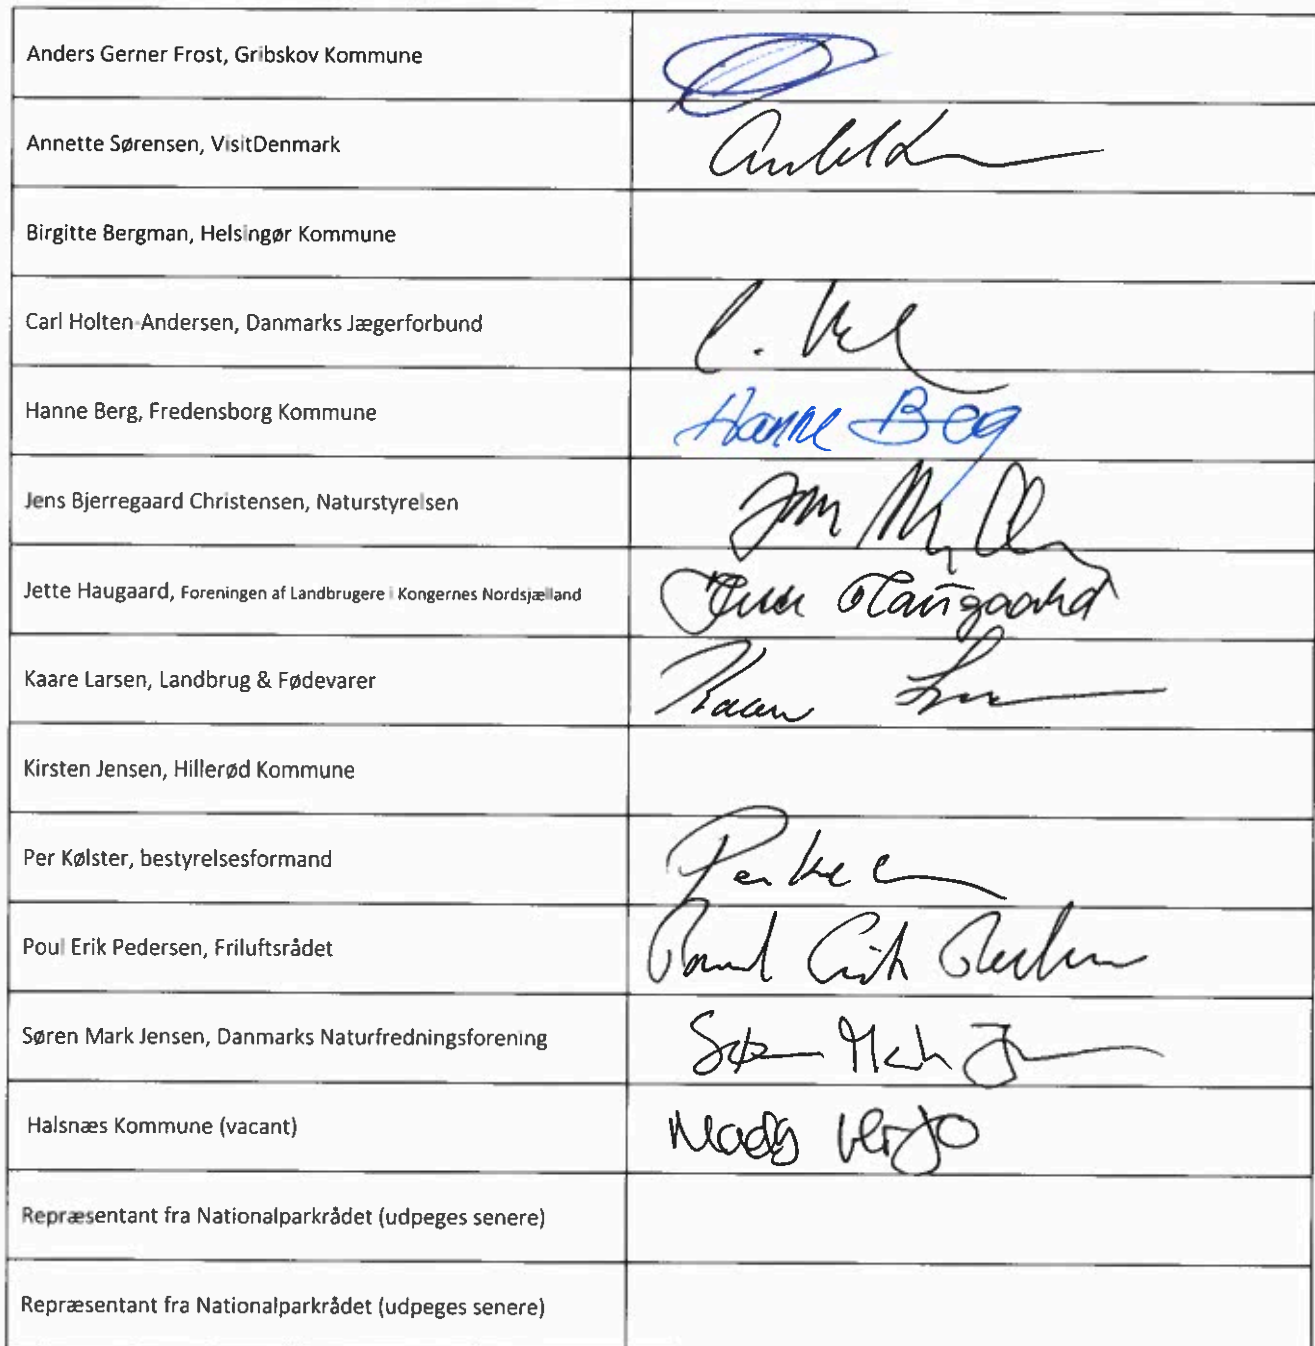 Anders Gerner Frost, Gribskov Kommune
Annette Sørensen, VisitDenmark
Birgitte Bergman, Helsingør Kommune
Carl Holten-Andersen, Danmarks Jægerforbund
Hanne Berg, Fredensborg Kommune Hanne Berg
Jens Bjerregaard Christensen, Naturstyrelsen
Jette Haugaard, Foreningen af Landbrugere i Kongernes Nordsjælland Haugaard
Kaare Larsen, Landbrug & Fødevarer Kaare
Kirsten Jensen, Hillerød Kommune
Per Kølster, bestyrelsesformand
Poul Erik Pedersen, Friluftsrådet Poul Erik Pedersen
Søren Mark Jensen, Danmarks Naturfredningsforening Søren Mark
Halsnæs Kommune (vacant) Mads
Repræsentant fra Nationalparkrådet (udpeges senere)
Repræsentant fra Nationalparkrådet (udpeges senere)